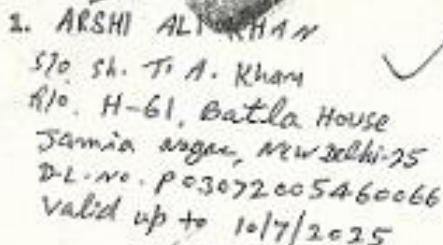 1. ARSHI ALI KHAN
S/o Sh. T. A. Khan
R/o. H-61, Batla House
Jamia nagar, New Delhi-25
D-L-No. P03072005460066
Valid up to 10/7/2025